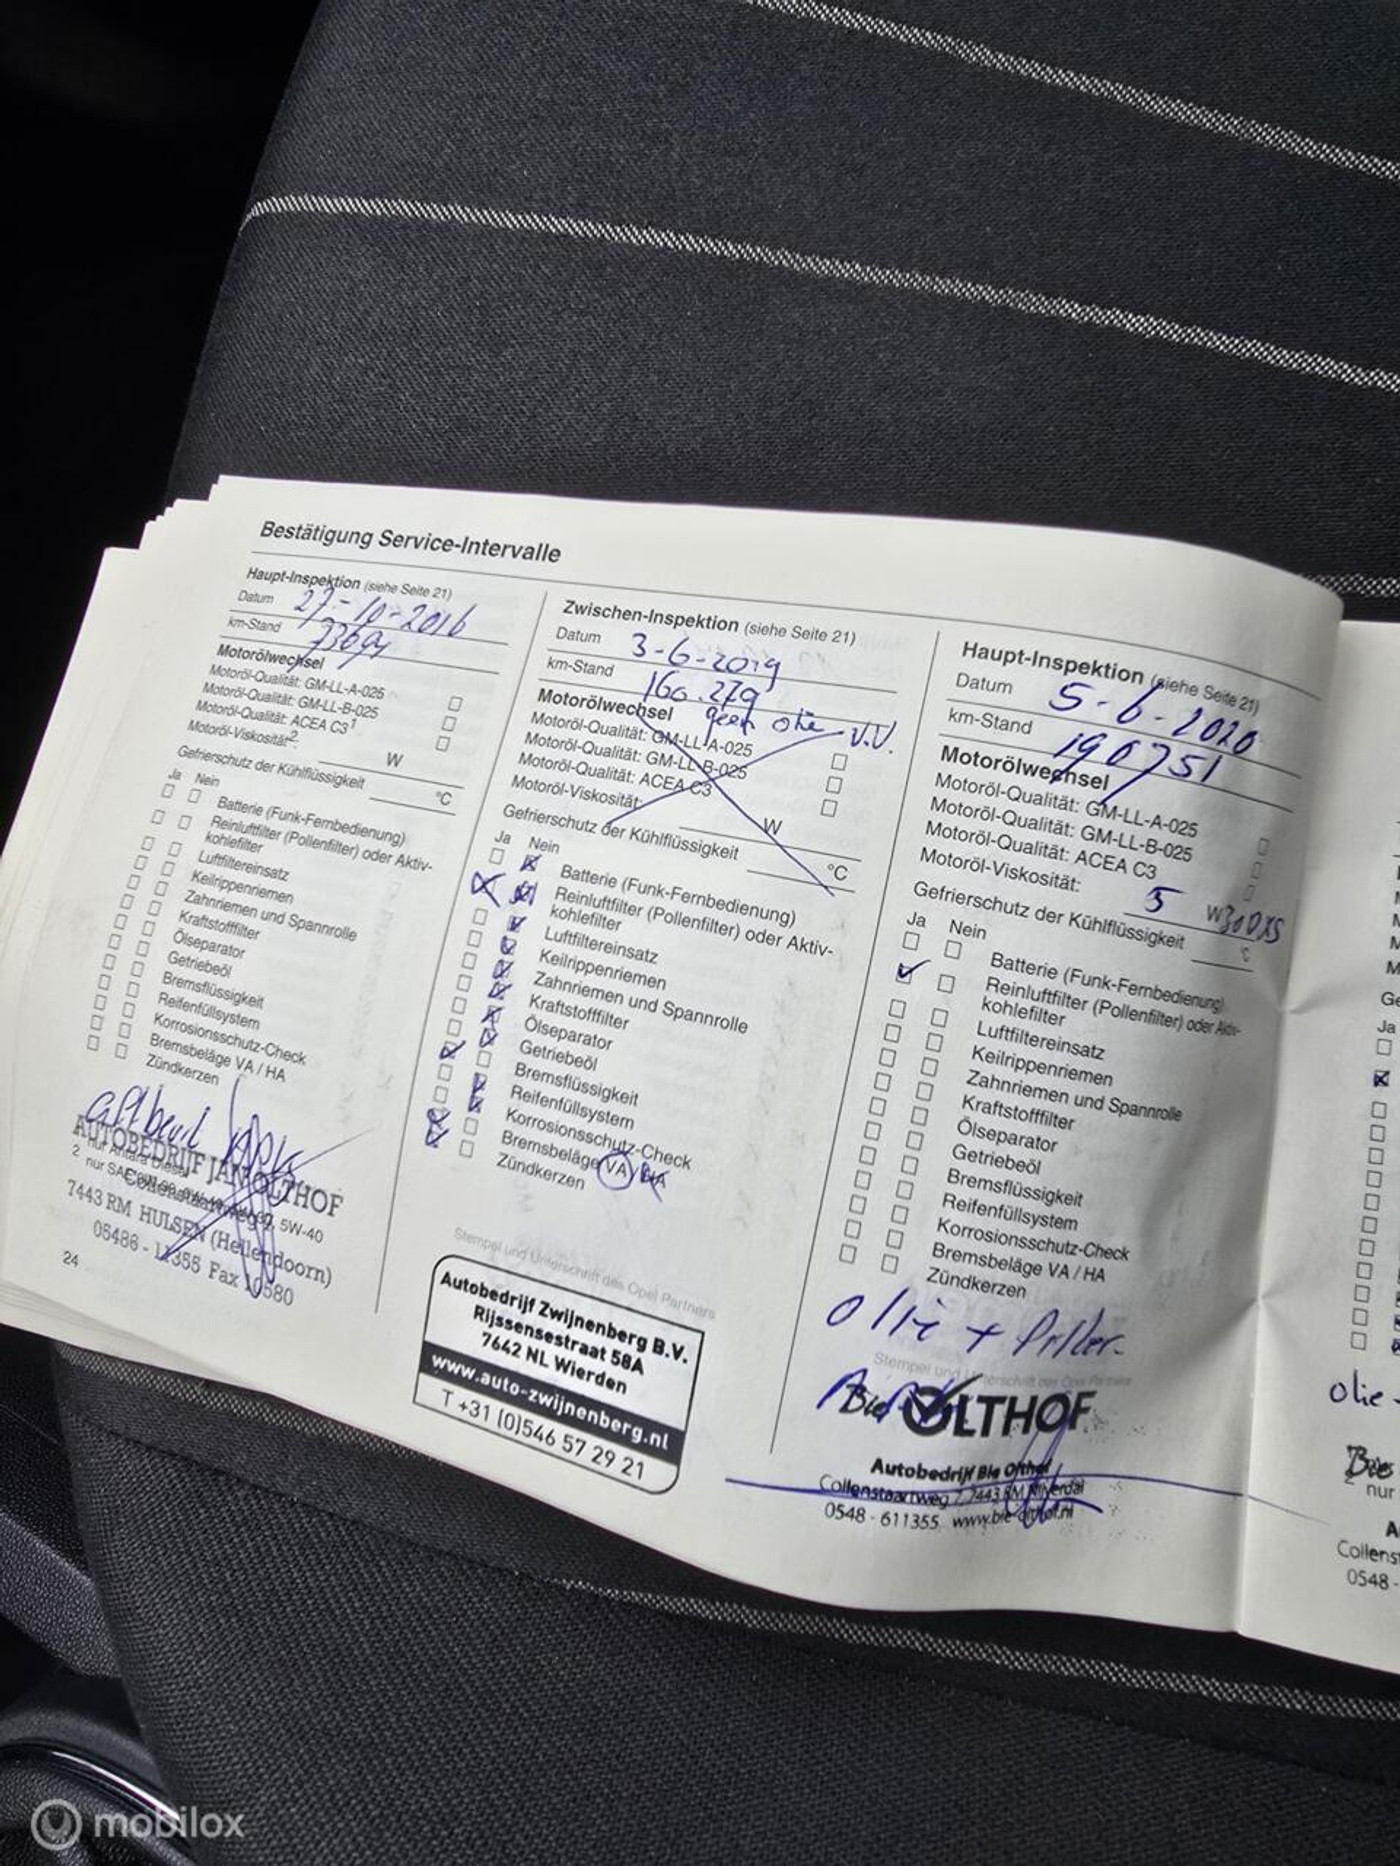 Bestätigung Service-Intervalle
Haupt-Inspektion (siehe Seite 21)
Datum 27-10-2016
km-Stand
Motorölwechsel
Motoröl-Qualität: GM-LL-A-025
Motoröl-Qualität: GM-LL-B-025
Motoröl-Qualität: ACEA C3¹
Motoröl-Viskosität²:
W
Gefrierschutz der Kühlflüssigkeit °C
Ja Nein
Batterie (Funk-Fernbedienung)
Reinluftfilter (Pollenfilter) oder Aktiv-
kohlefilter
Luftfiltereinsatz
Keilrippenriemen
Zahnriemen und Spannrolle
Kraftstofffilter
Ölseparator
Getriebeöl
Bremsflüssigkeit
Reifenfüllsystem
Korrosionsschutz-Check
Bremsbeläge VA / HA
Zündkerzen
AUTOBEDRIJF JAN OLTHOF
2 nur Antara Diesel
5W-40
7443 RM HULSEN (Hellendoorn)
05486 - 11355 Fax 10580
24
Zwischen-Inspektion (siehe Seite 21)
Datum 3-6-2019
km-Stand 160.279
Motorölwechsel geen olie v.v.
Motoröl-Qualität: GM-LL-A-025
Motoröl-Qualität: GM-LL-B-025
Motoröl-Qualität: ACEA C3
Motoröl-Viskosität:
W
Gefrierschutz der Kühlflüssigkeit °C
Ja Nein
Batterie (Funk-Fernbedienung)
Reinluftfilter (Pollenfilter) oder Aktiv-
kohlefilter
Luftfiltereinsatz
Keilrippenriemen
Zahnriemen und Spannrolle
Kraftstofffilter
Ölseparator
Getriebeöl
Bremsflüssigkeit
Reifenfüllsystem
Korrosionsschutz-Check
Bremsbeläge VA / HA
Zündkerzen
Stempel und Unterschrift des Opel Partners
Autobedrijf Zwijnenberg B.V.
Rijssensestraat 58A
7642 NL Wierden
www.auto-zwijnenberg.nl
T +31 (0)546 57 29 21
Haupt-Inspektion (siehe Seite 21)
Datum 5-6-2020
km-Stand 190751
Motorölwechsel
Motoröl-Qualität: GM-LL-A-025
Motoröl-Qualität: GM-LL-B-025
Motoröl-Qualität: ACEA C3
Motoröl-Viskosität: 5 W
Gefrierschutz der Kühlflüssigkeit °C
Ja Nein
Batterie (Funk-Fernbedienung)
Reinluftfilter (Pollenfilter) oder Aktiv-
kohlefilter
Luftfiltereinsatz
Keilrippenriemen
Zahnriemen und Spannrolle
Kraftstofffilter
Ölseparator
Getriebeöl
Bremsflüssigkeit
Reifenfüllsystem
Korrosionsschutz-Check
Bremsbeläge VA / HA
Zündkerzen
Olie + filter
Stempel und Unterschrift des Opel Partners
Bie OLTHOF
Autobedrijf Bie Olthof
Collenstaartweg 7, 7443 RM Nijverdal
0548 - 611355 www.bie-olthof.nl
Ja
olie
Bie
nur
0548 -
mobilox